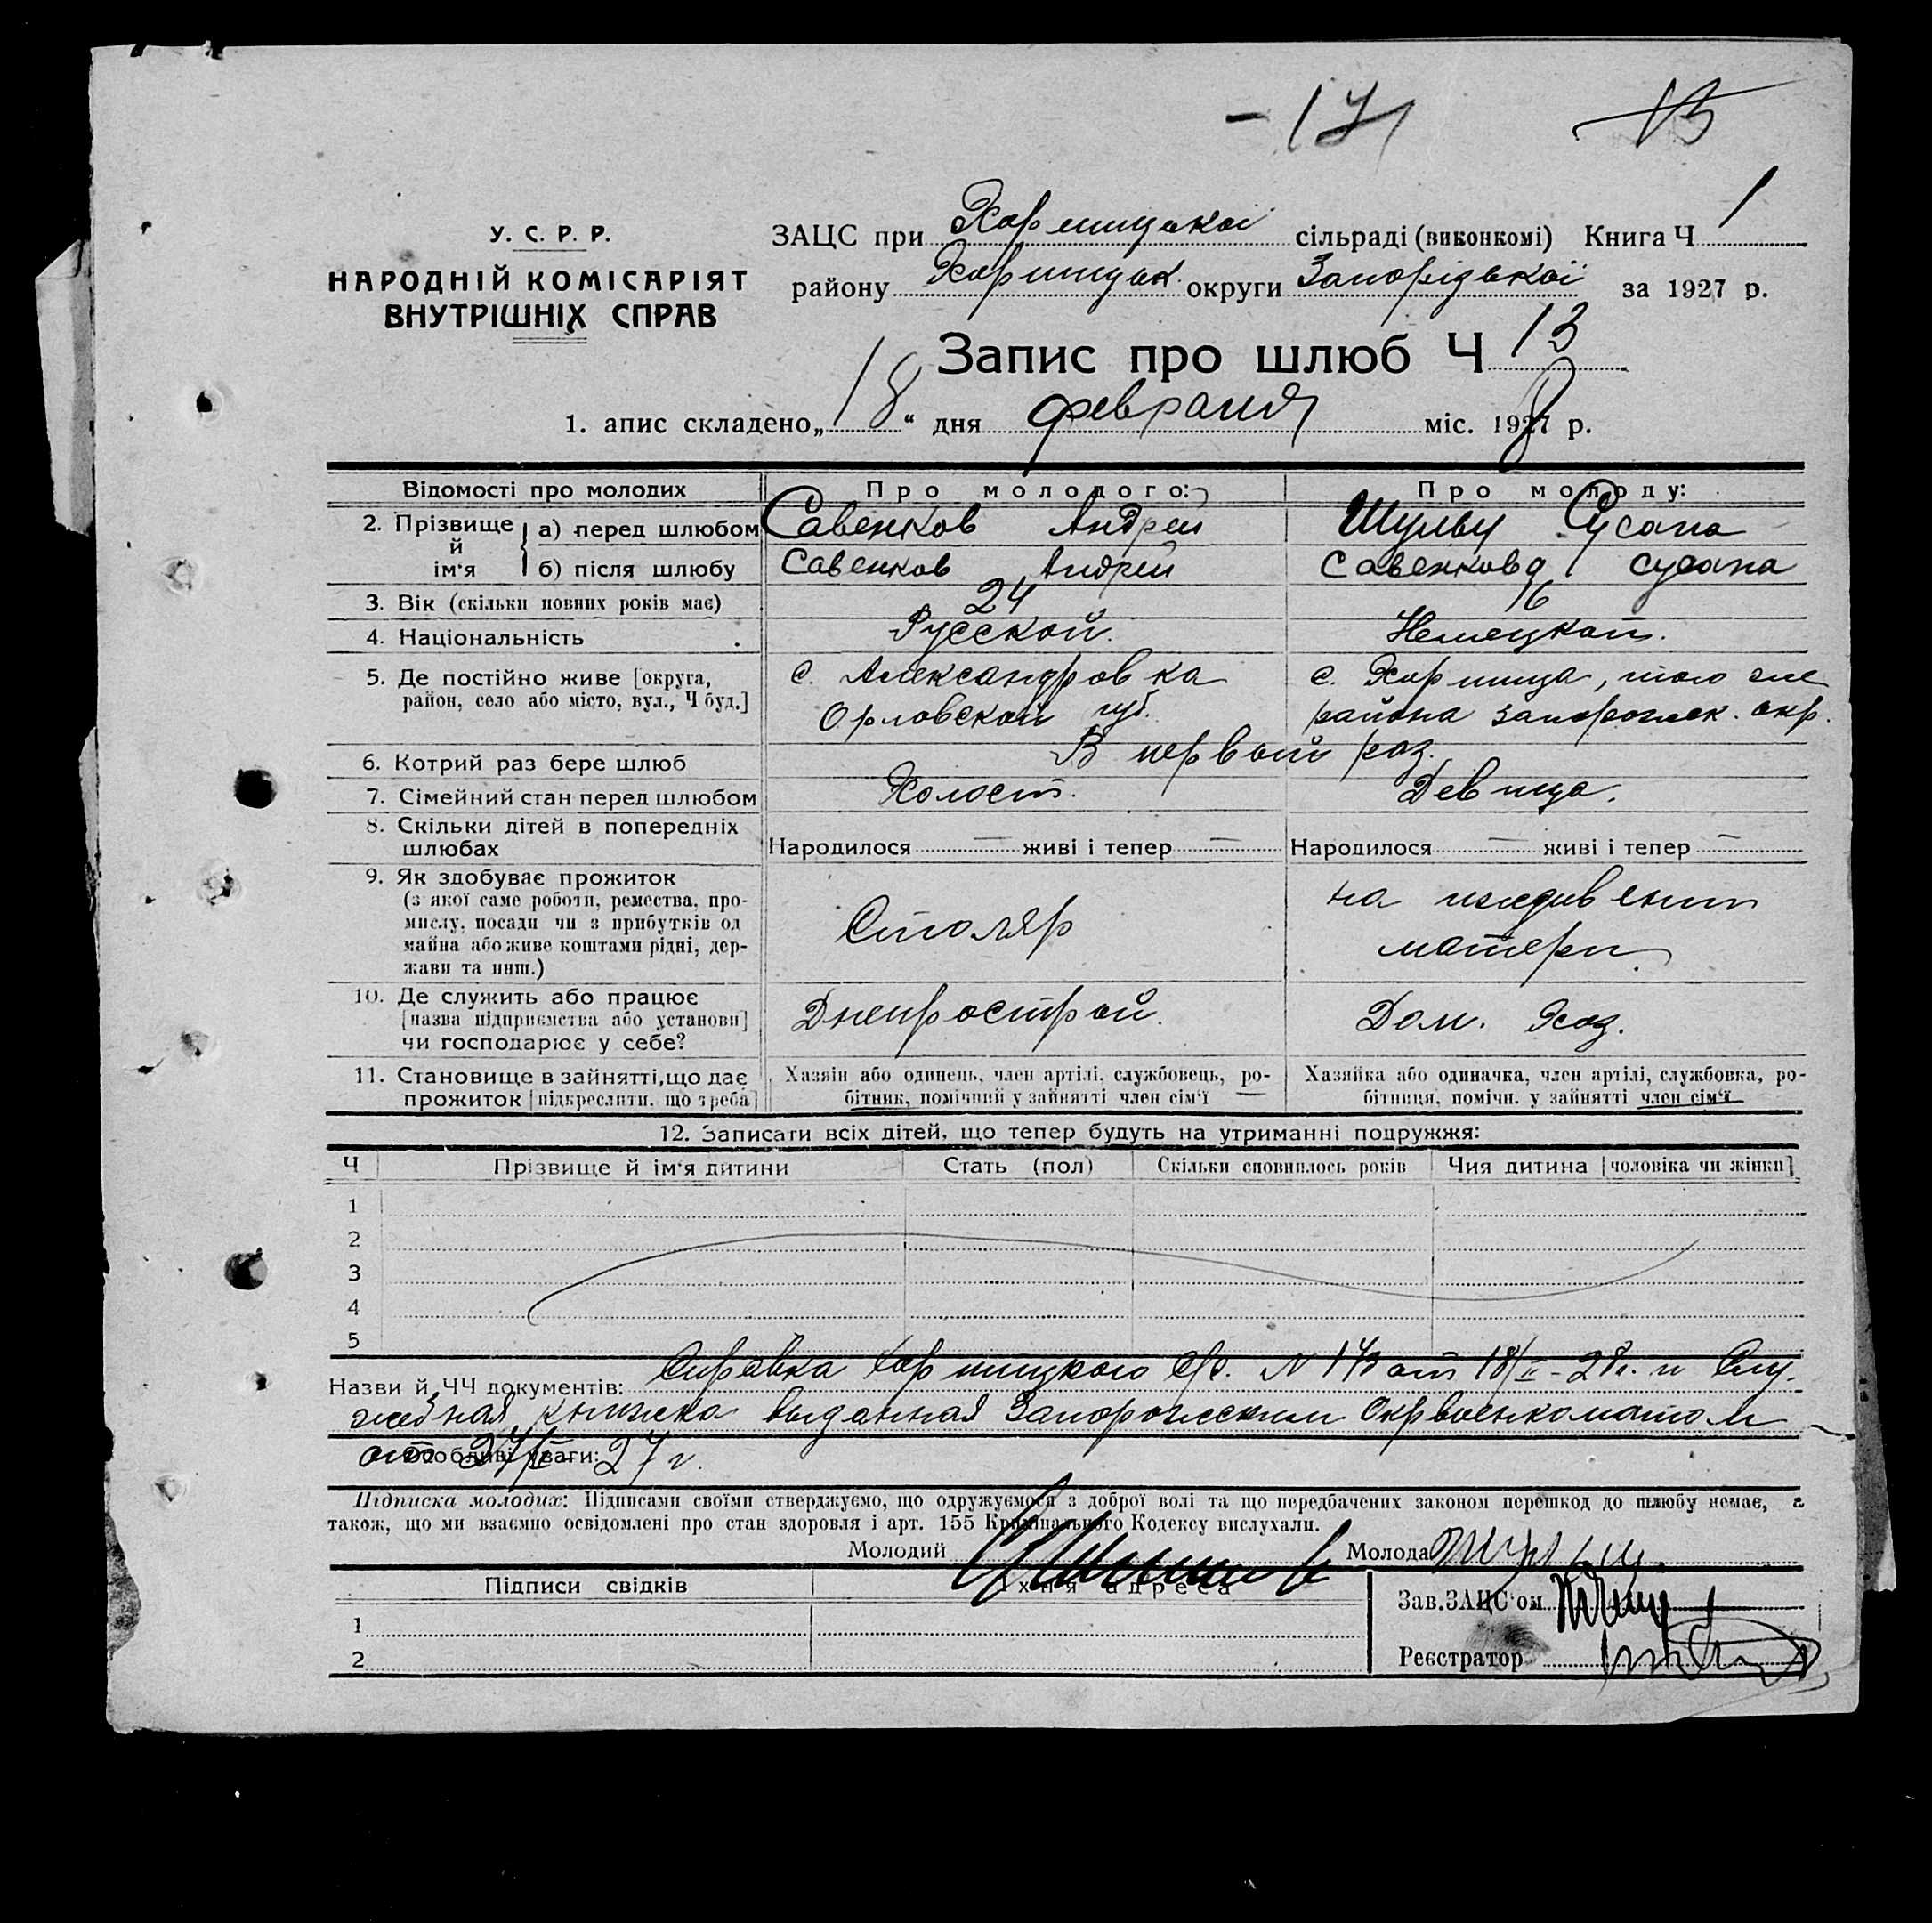 -171 13
У. С. Р. Р.
НАРОДНІЙ КОМІСАРІЯТ
ВНУТРІШНІХ СПРАВ
ЗАЦС при Хортицької сільраді (виконкомі) Книга Ч 1
району Хортицьк. округи Запорізької за 1927 р.
Запис про шлюб Ч 13
1. апис складено „18“ дня февраля міс. 1928 р.
Відомості про молодих Про молодого: Про молоду:
2. Прізвище й ім‘я а) перед шлюбом Савенков Андрей Шульц Сусана
б) після шлюбу Савенков Андрей Савенкова Сусана
3. Вік (скільки повних років має) 24 16
4. Національність Русской. Немецкой.
5. Де постійно живе [округа, с. Александровка с. Хортица, того же
район, село або місто, вул., Ч буд.] Орловской губ. района запорожск. окр.
6. Котрий раз бере шлюб В первый раз.
7. Сімейний стан перед шлюбом Холост. Девица.
8. Скільки дітей в попередніх
шлюбах Народилося — живі і тепер — Народилося — живі і тепер —
9. Як здобуває прожиток
(з якої саме роботи, ремества, про-
мислу, посади чи з прибутків од
майна або живе коштами рідні, дер-
жави та инш.)
Столяр
на иждивении
матери.
10. Де служить або працює
[назва підприємства або установи]
чи господарює у себе?
Днепрострой. Дом. Хоз.
11. Становище в зайнятті, що дає Хазяїн або одинець, член артілі, службовець, ро- Хазяйка або одиначка, член артілі, службовка, ро-
прожиток [підкреслити, що треба] бітник, помічний у зайнятті член сім‘ї бітниця, помічн. у зайнятті член сім‘ї
12. Записати всіх дітей, що тепер будуть на утриманні подружжя:
Ч Прізвище й ім‘я дитини Стать (пол) Скільки сповнилось років Чия дитина [чоловіка чи жінки]
1
2
3
4
5
Назви й ЧЧ документів: Справка Хортицкого с/с. N 143 от 18/II-28г. и Слу-
жебная книжка выданная Запорожским Окрвоенкоматом
Особливі уваги: от 27 г.
Підписка молодих: Підписами своїми стверджуємо, що одружуємося з доброї волі та що передбачених законом перешкод до шлюбу немає, а
також, що ми взаємно освідомлені про стан здоровля і арт. 155 Кримінального Кодексу вислухали.
Молодий Молода Шульц.
Підписи свідків Їхня адреса
Зав. ЗАЦС‘ом
1
Реєстратор
2